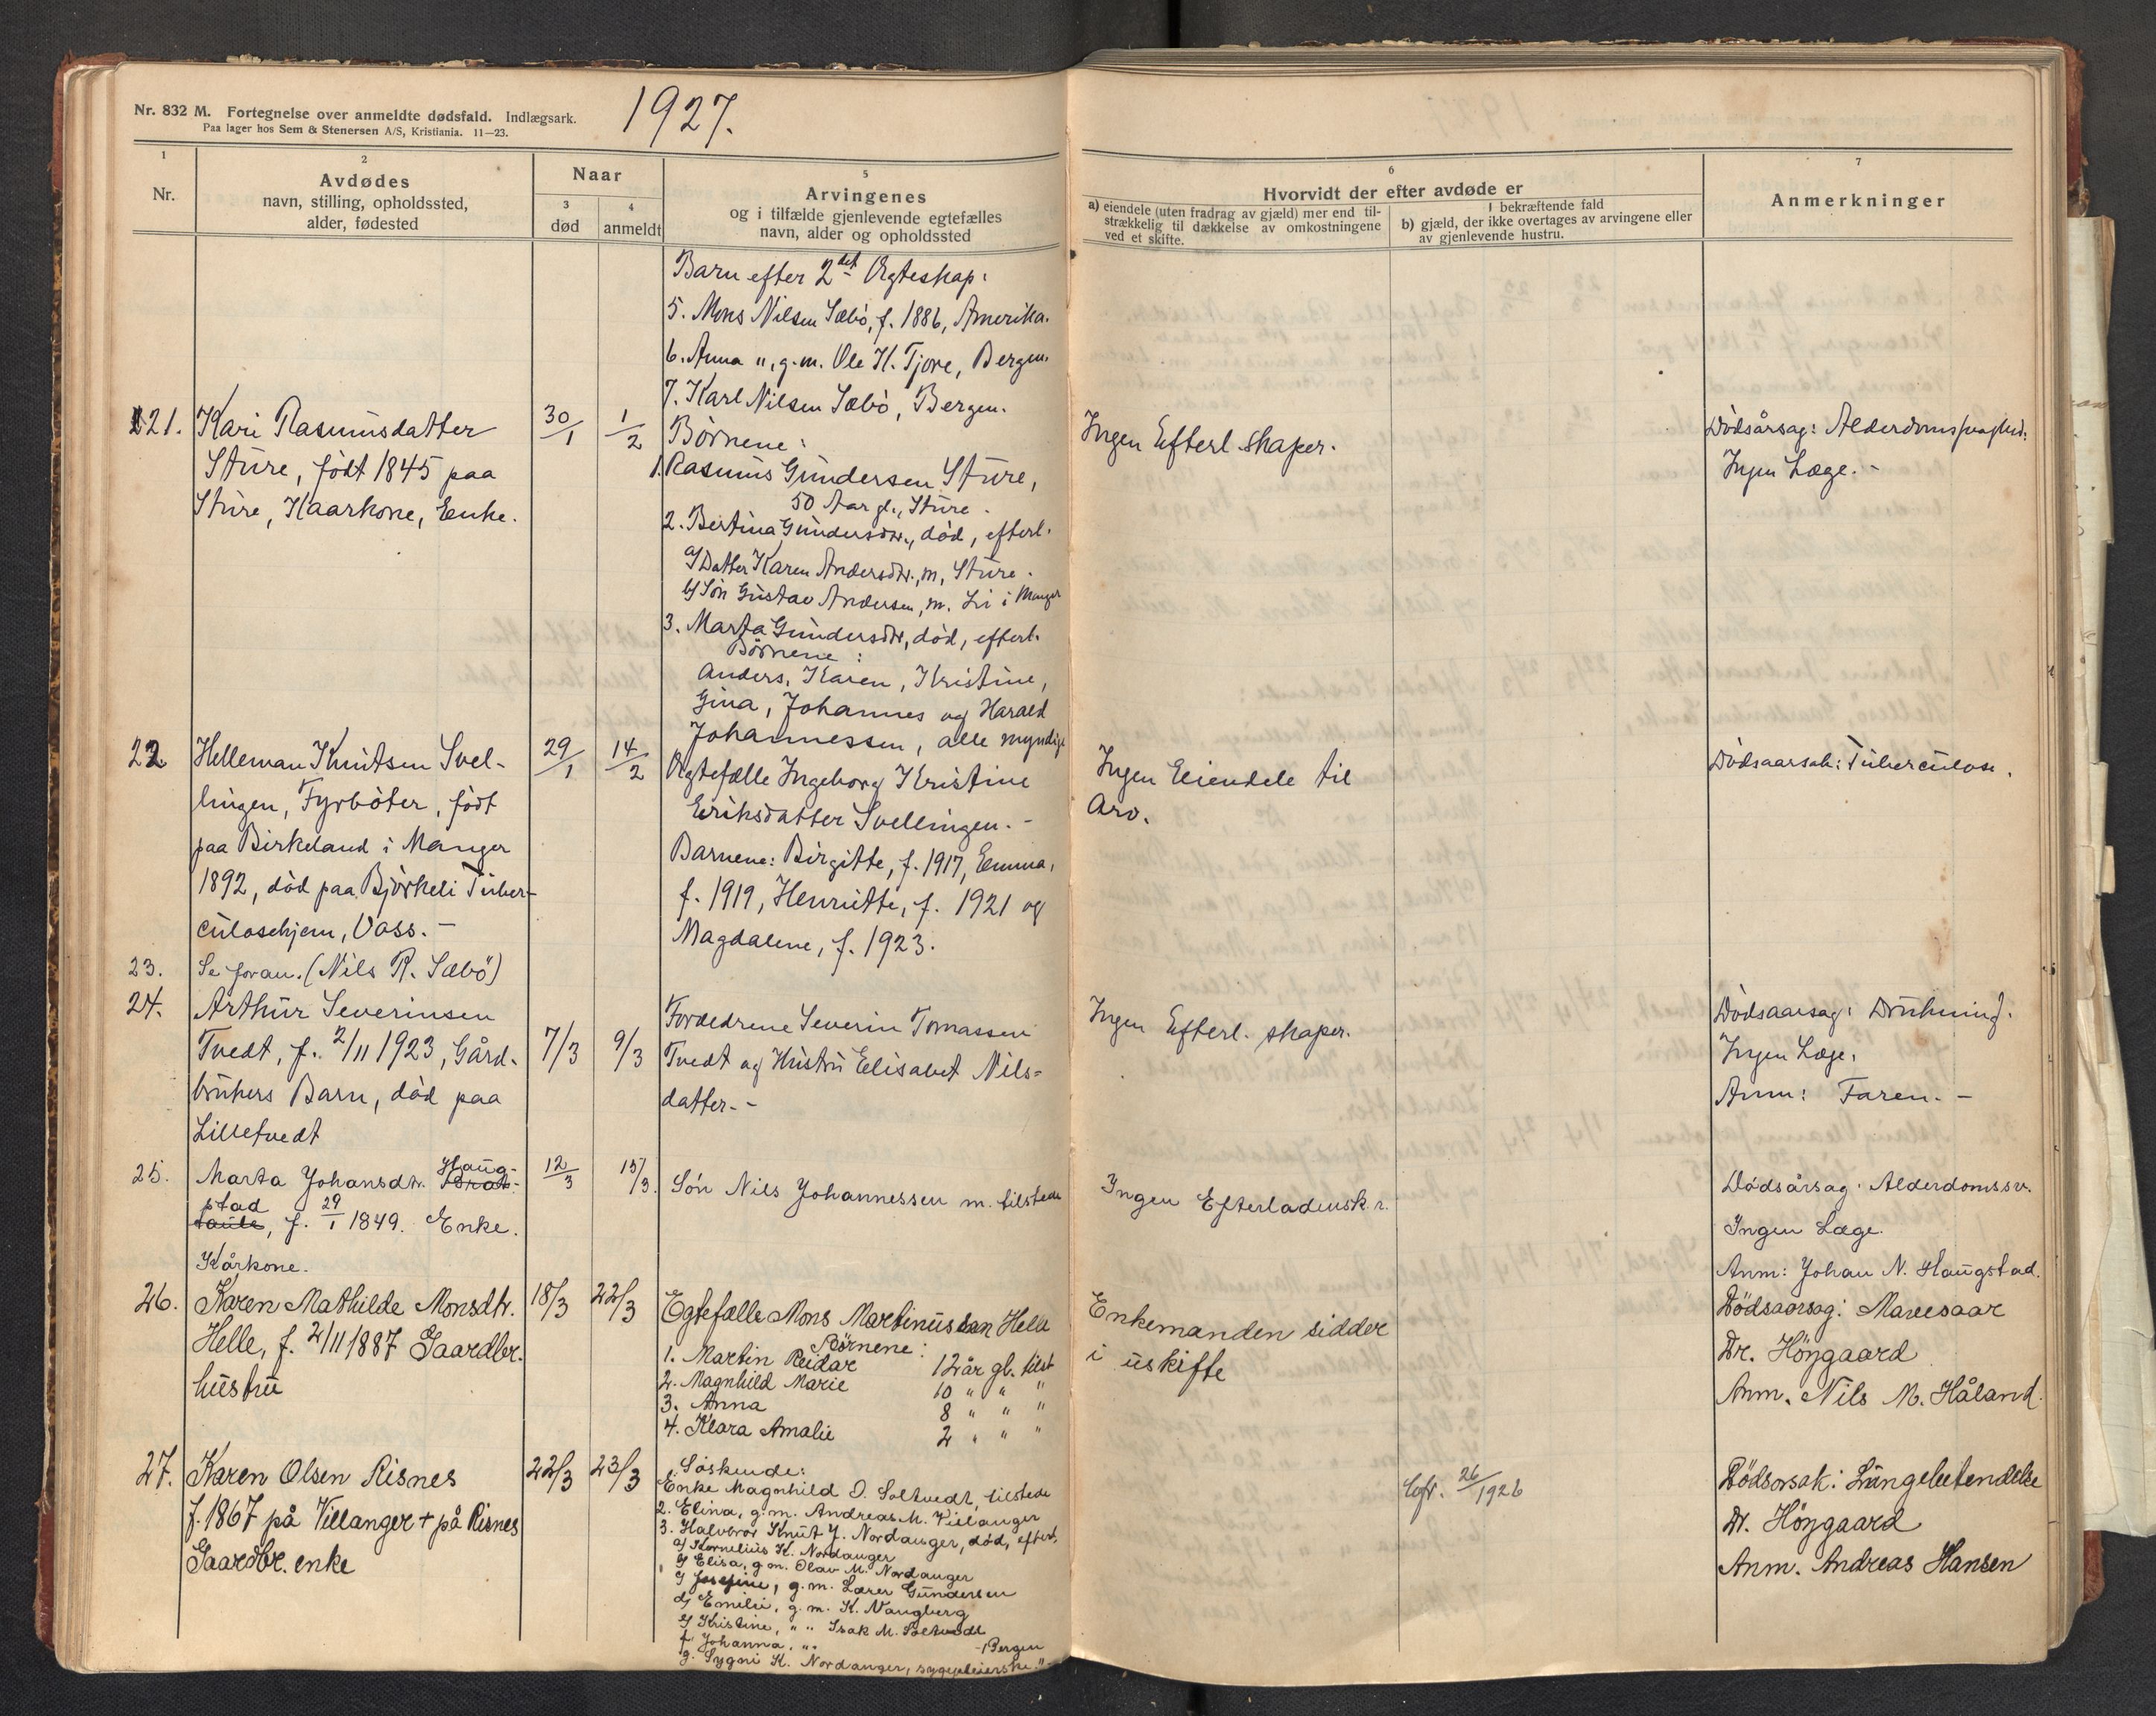 Nr. 832 M. Fortegnelse over anmeldte dødsfald. Indlægsark.
Paa lager hos Sem & Stenersen A/S, Kristiania. 11—23.
1927.
1
Nr.
2
Avdødes
navn, stilling, opholdssted,
alder, fødested
Naar
3
død
4
anmeldt
5
Arvingenes
og i tilfælde gjenlevende egtefælles
navn, alder og opholdssted
6
Hvorvidt der efter avdøde er
a) eiendele (uten fradrag av gjæld) mer end til-
strækkelig til dækkelse av omkostningene
ved et skifte.
I bekræftende fald
b) gjæld, der ikke overtages av arvingene eller
av gjenlevende hustru.
7
Anmerkninger
Barn efter 2det Ægteskap:
5. Mons Nilsen Sæbö, f. 1886, Amerika.
6. Anna ", g.m. Ole K. Tjore, Bergen.
7. Karl Nilsen Sæbö, Bergen.
21.
Kari Rasmusdatter
Sture, födt 1845 paa
Sture, Kaarkone, Enke.
30/1
1/2
Börnene:
1. Rasmus Gundersen Sture,
50 Aar gl., Sture.
2. Bertina Gundersdtr., död, efterl.
a) Datter Karen Andersdtr., m, Sture.
b) Sön Gustav Andersen, m. Li i Manger
3. Marta Gundersdtr, död, efterl.
Börnene:
Anders, Karen, Kristine,
Gina, Johannes og Harald
Johannessen, alle myndige
Ingen Efterl.skaper.
Dödsårsag: Alderdomssvaghed.
Ingen Læge. -
22
Helleman Knutsen Svel-
lingen, Fyrböter, födt
paa Birkeland i Manger
1892, död paa Björkeli Tuber-
culosehjem, Voss. -
29/1
14/2
Ægtefælle Ingeborg Kristine
Eriksdatter Svellingen. -
Barnene: Birgitte, f. 1917, Emma,
f. 1919, Henriette, f. 1921 og
Magdalene, f. 1923.
Ingen Eiendele til
Arv.
Dödsaarsak: Tuberculose.
23.
Se foran. (Nils R. Sæbö)
24.
Arthur Severinsen
Tvedt, f. 2/11 1923, Gård-
brukers Barn, död paa
Lilletvedt
7/3
9/3
Forældrene Severin Tomassen
Tvedt og Hustru Elisabet Nils-
datter. -
Ingen Efterl. skaper.
Dödsaarsag: Drukning.
Ingen Læge.
Anm: Faren. -
25.
Marta Johansdtr. Haug-
stad, f. 29/1 1849. Enke.
Kårkone.
12/3
15/3.
Sön Nils Johannessen m. tilstede
Ingen Efterladensk.r.
Dödsårsag. Alderdomssv.
Ingen Læge.
Anm: Johan N. Haugstad.
26.
Karen Mathilde Monsdtr.
Helle, f. 2/11 1887 Gaardbr.
hustru
18/3
22/3
Egtefælle Mons Martinussen Helle
Børnene:
1. Martin Reidar 12 år gl. tilst
2. Magnhild Marie 10 " " "
3. Anna 8 " " "
4. Klara Amalie 2 " " "
Enkemanden sidder
i uskifte
Dödsaarsag:
Dr. Höygaard
Anm. Nils M. Håland.
27.
Karen Olsen Risnes
f. 1867 på Villanger + på Risnes
Gaardbr. enke
22/3
23/3
Söskende:
Enke Magnhild O. Soltvedt, tilstede
2. Elina, g.m. Andreas M. Villanger
3. Halvbror Knut J. Nordanger, död, efterl.
a) Kornelius K. Nordanger
b) Elisa, g.m. Olav M. Nordanger
c) Josefine, g.m. Lærer Gundersen
d) Emilie, g.m. K. Vangberg
e) Kristine, " " Isak M. Soltvedt
f. Johanna, " " - Bergen
g. Sygni K. Nordanger, sygepleierske. "
26/ 1926
Dödsorsak: Lungebetendelse
Dr. Höygaard
Anm. Andreas Hansen